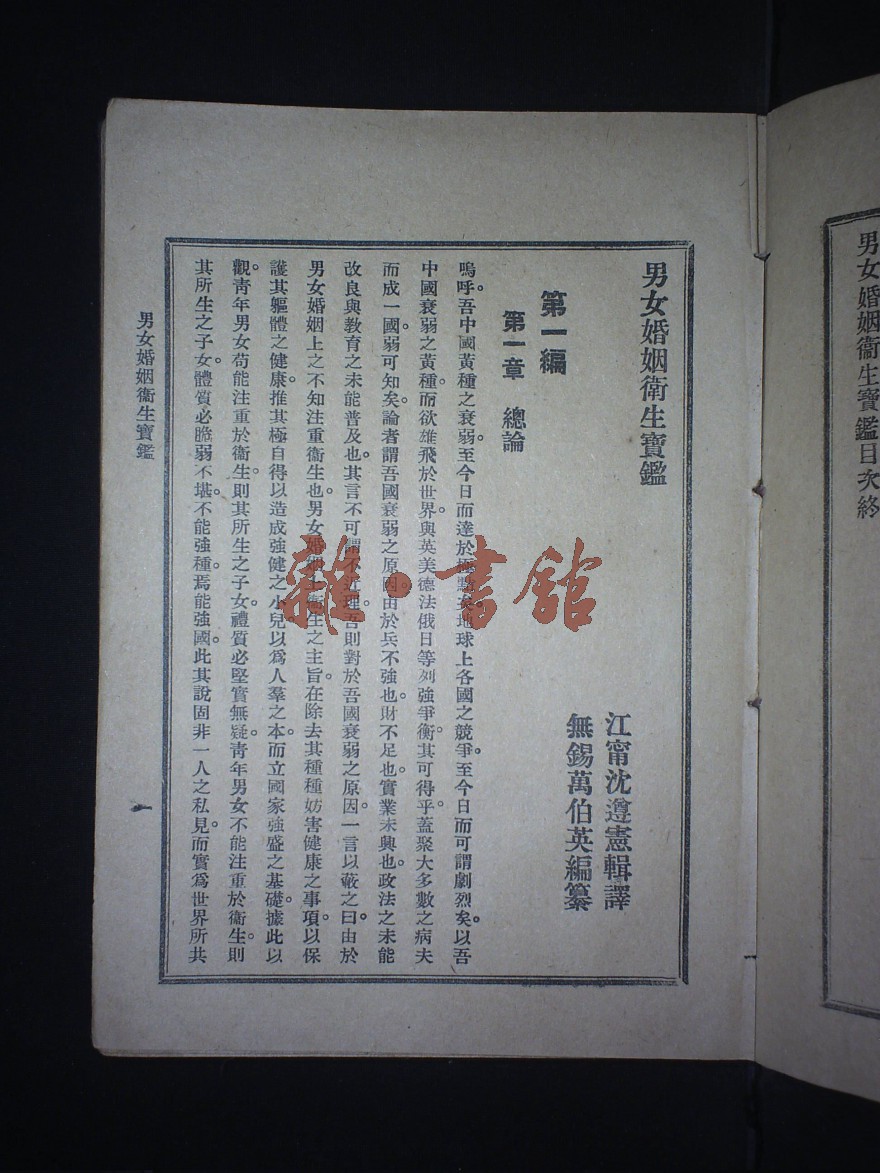 男女婚姻衛生寶鑑目次終
男女婚姻衛生寶鑑
江甯沈遵憲輯譯
無錫萬伯英編纂
第一編
第一章　總論
嗚呼。吾中國黃種之衰弱。至今日而達於極點矣。地球上各國之競爭。至今日而可謂劇烈矣。以吾
中國衰弱之黃種。而欲雄飛於世界。與英美德法俄日等列強爭衡。其可得乎。蓋聚大多數之病夫
而成一國。弱可知矣。論者謂吾國衰弱之原因。由於兵不強也。財不足也。實業未興也。政法之未能
改良與教育之未能普及也。其言不可謂不近理。吾則對於吾國衰弱之原因。一言以蔽之曰。由於
男女婚姻上之不知注重衛生也。男女婚姻上衛生之主旨。在除去其種種妨害健康之事項。以保
護其軀體之健康。推其極自得以造成強健之小兒。以爲人羣之本。而立國家強盛之基礎。據此以
觀。青年男女苟能注重於衛生。則其所生之子女。禮質必堅實無疑。青年男女不能注重於衛生。則
其所生之子女。體質必脆弱不堪。不能強種。焉能強國。此其說固非一人之私見。而實爲世界所共
男女婚姻衛生寶鑑
一
雜·書館